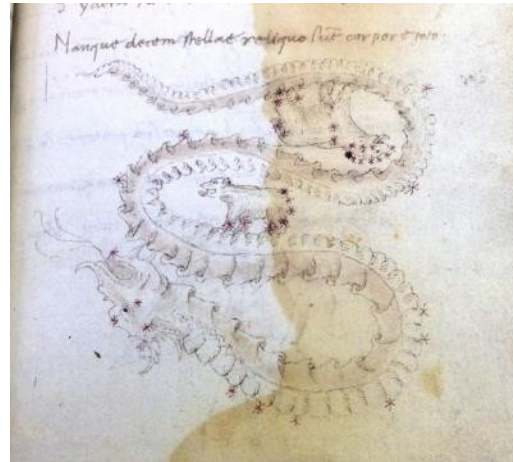 Nanque decem stellae reliquo sūt corpore toto: